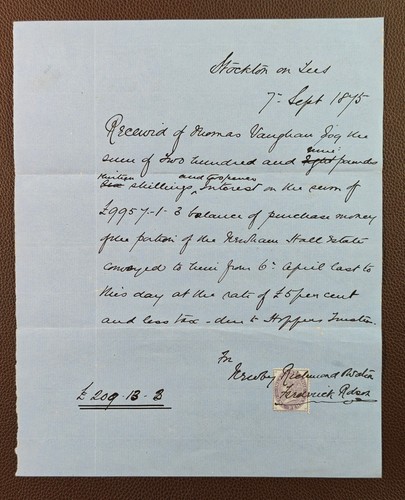 Stockton on Tees
7th Sept 1875
Received of Thomas Vaughan Esq the
nine
sum of Two hundred and eight pounds
thirteen and
shillings, Interest on the sum of
£9957-1-3 balance of purchase money
of the portion of the Newham Hall Estate
conveyed to him from 6th April last to
this day at the rate of £5 per cent
and less tax - due to Hoppers Trustees.
For
Newby Richmond & Watson
Frederick Robson
£ 209-13-3